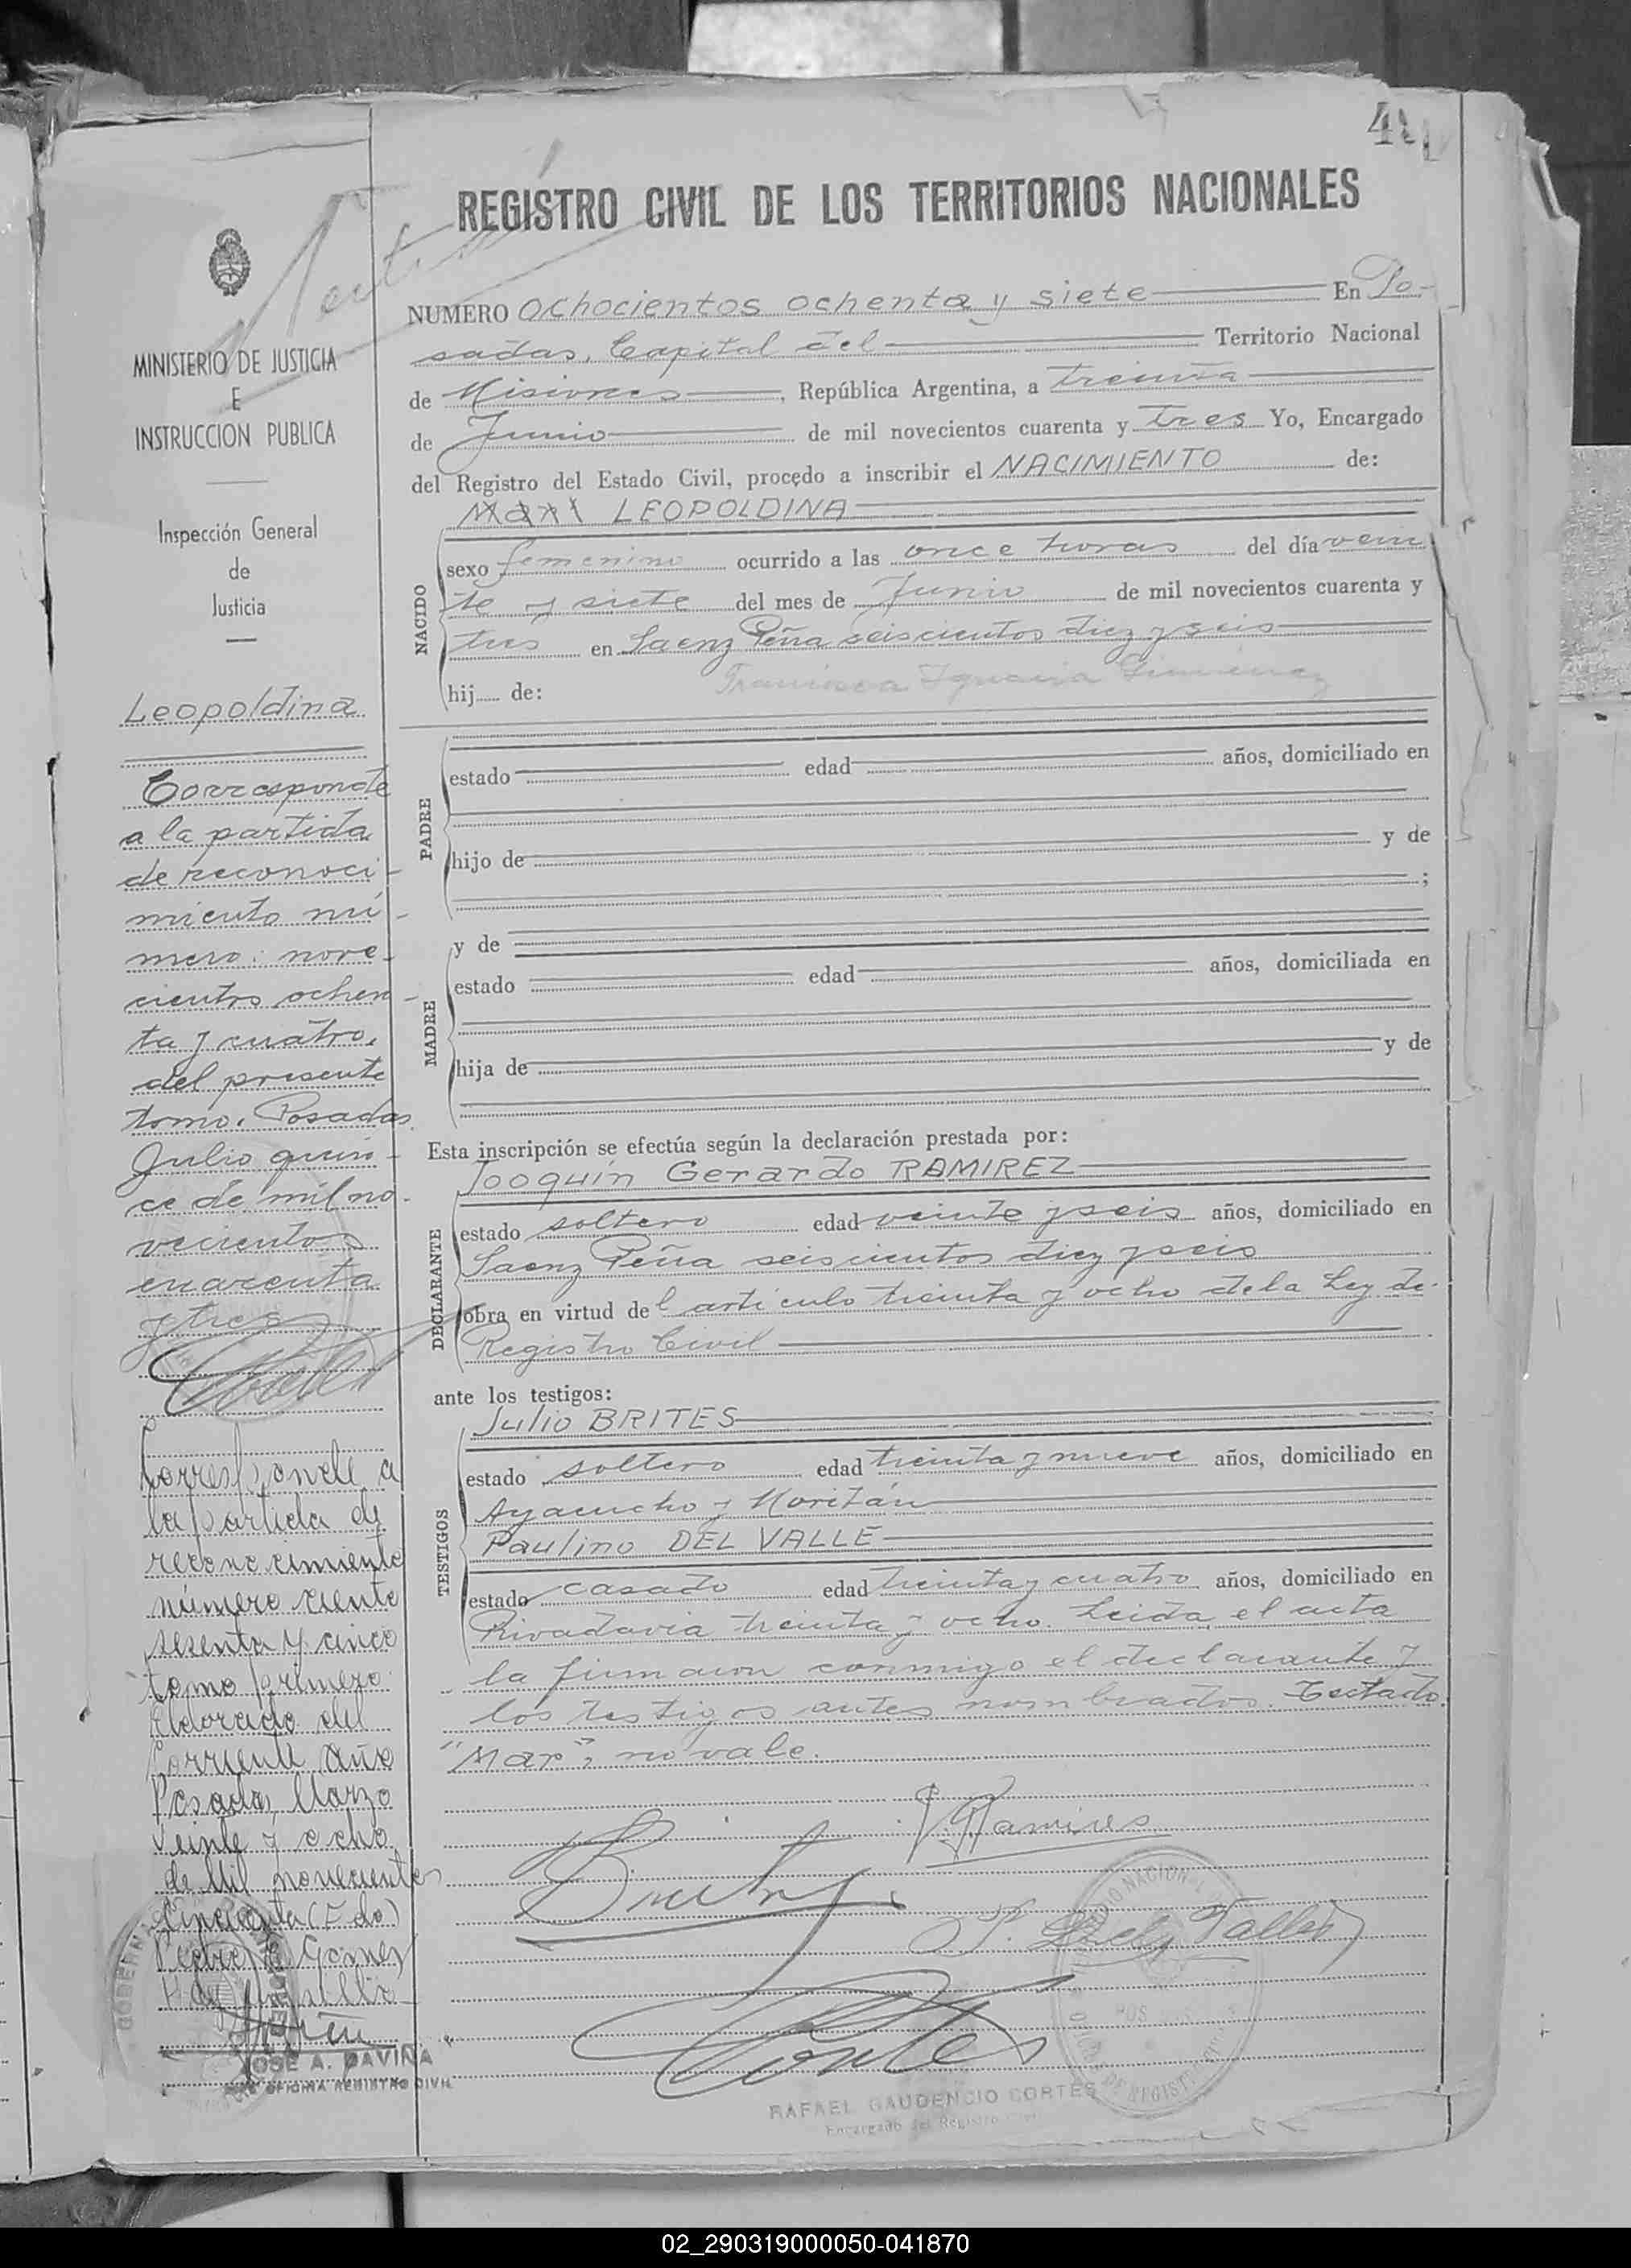 REGISTRO CIVIL DE LOS TERRITORIOS NACIONALES
MINISTERIO DE JUSTICIA
E
INSTRUCCION PUBLICA
Inspección General
de
Justicia
Leopoldina
Corresponde
a la partida
de reconoci-
miento nú-
mero: nove-
cientos ochen-
ta y cuatro,
del presente
tomo. Posadas,
Julio quin-
ce de mil no-
vecientos
cuarenta
y tres
Corresponde a
la partida de
reconocimiento
número ciento
sesenta y cinco
tomo primero
Eldorado del
Corriente año
Posadas, Marzo
veinte y ocho
de Mil novecientos
Cincuenta (Fdo)
JOSE A. DAVIÑA
OFICINA REGISTRO CIVIL
NUMERO Ochocientos ochenta y siete En Po-
sadas, Capital del Territorio Nacional
de Misiones, República Argentina, a treinta
de Junio de mil novecientos cuarenta y tres Yo, Encargado
del Registro del Estado Civil, procedo a inscribir el NACIMIENTO de:
LEOPOLDINA
NACIDO
sexo femenino ocurrido a las once horas del día vein
te y siete del mes de Junio de mil novecientos cuarenta y
tres en Saenz Peña seiscientos diez y seis
hij de: Francisca Ignacia Giménez
PADRE
estado edad años, domiciliado en
hijo de y de
;
MADRE
y de
estado edad años, domiciliada en
hija de y de
Esta inscripción se efectúa según la declaración prestada por:
Joaquín Gerardo RAMIREZ
DECLARANTE
estado soltero edad veinte y seis años, domiciliado en
Saenz Peña seiscientos diez y seis
obra en virtud del artículo treinta y ocho de la Ley de
Registro Civil
ante los testigos:
TESTIGOS
Julio BRITES
estado soltero edad treinta y nueve años, domiciliado en
Ayacucho y Moritán
Paulino DEL VALLE
estado casado edad treinta y cuatro años, domiciliado en
Rivadavia treinta y ocho. Leida el acta
la firmaron conmigo el declarante y
los testigos antes nombrados. Testado:
"Mar", no vale.
J. Ramires
Brites
P. Del Valle
Cortes
RAFAEL GAUDENCIO CORTES
Encargado del Registro Civil
02_290319000050-041870